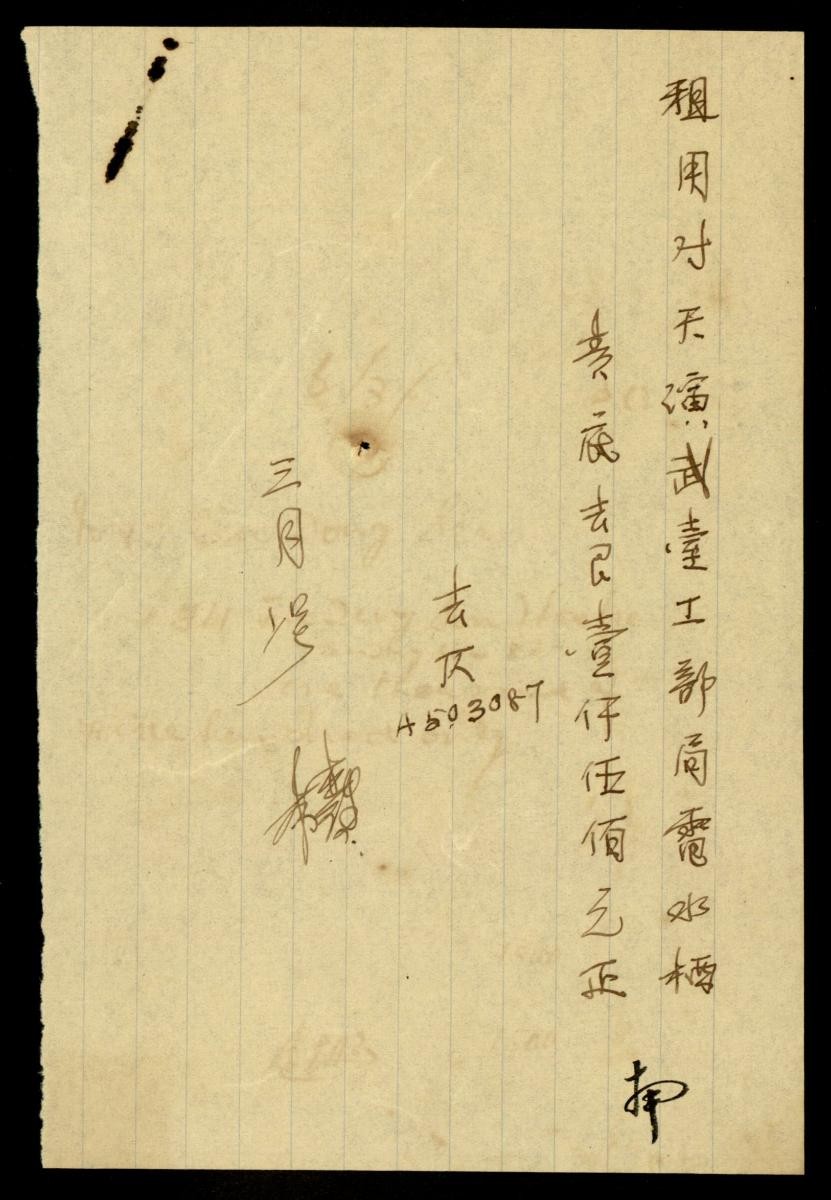 租用对天演武臺工部局電水㮋
押
責底去艮壹仟伍佰元正
去仄
A503087
三月